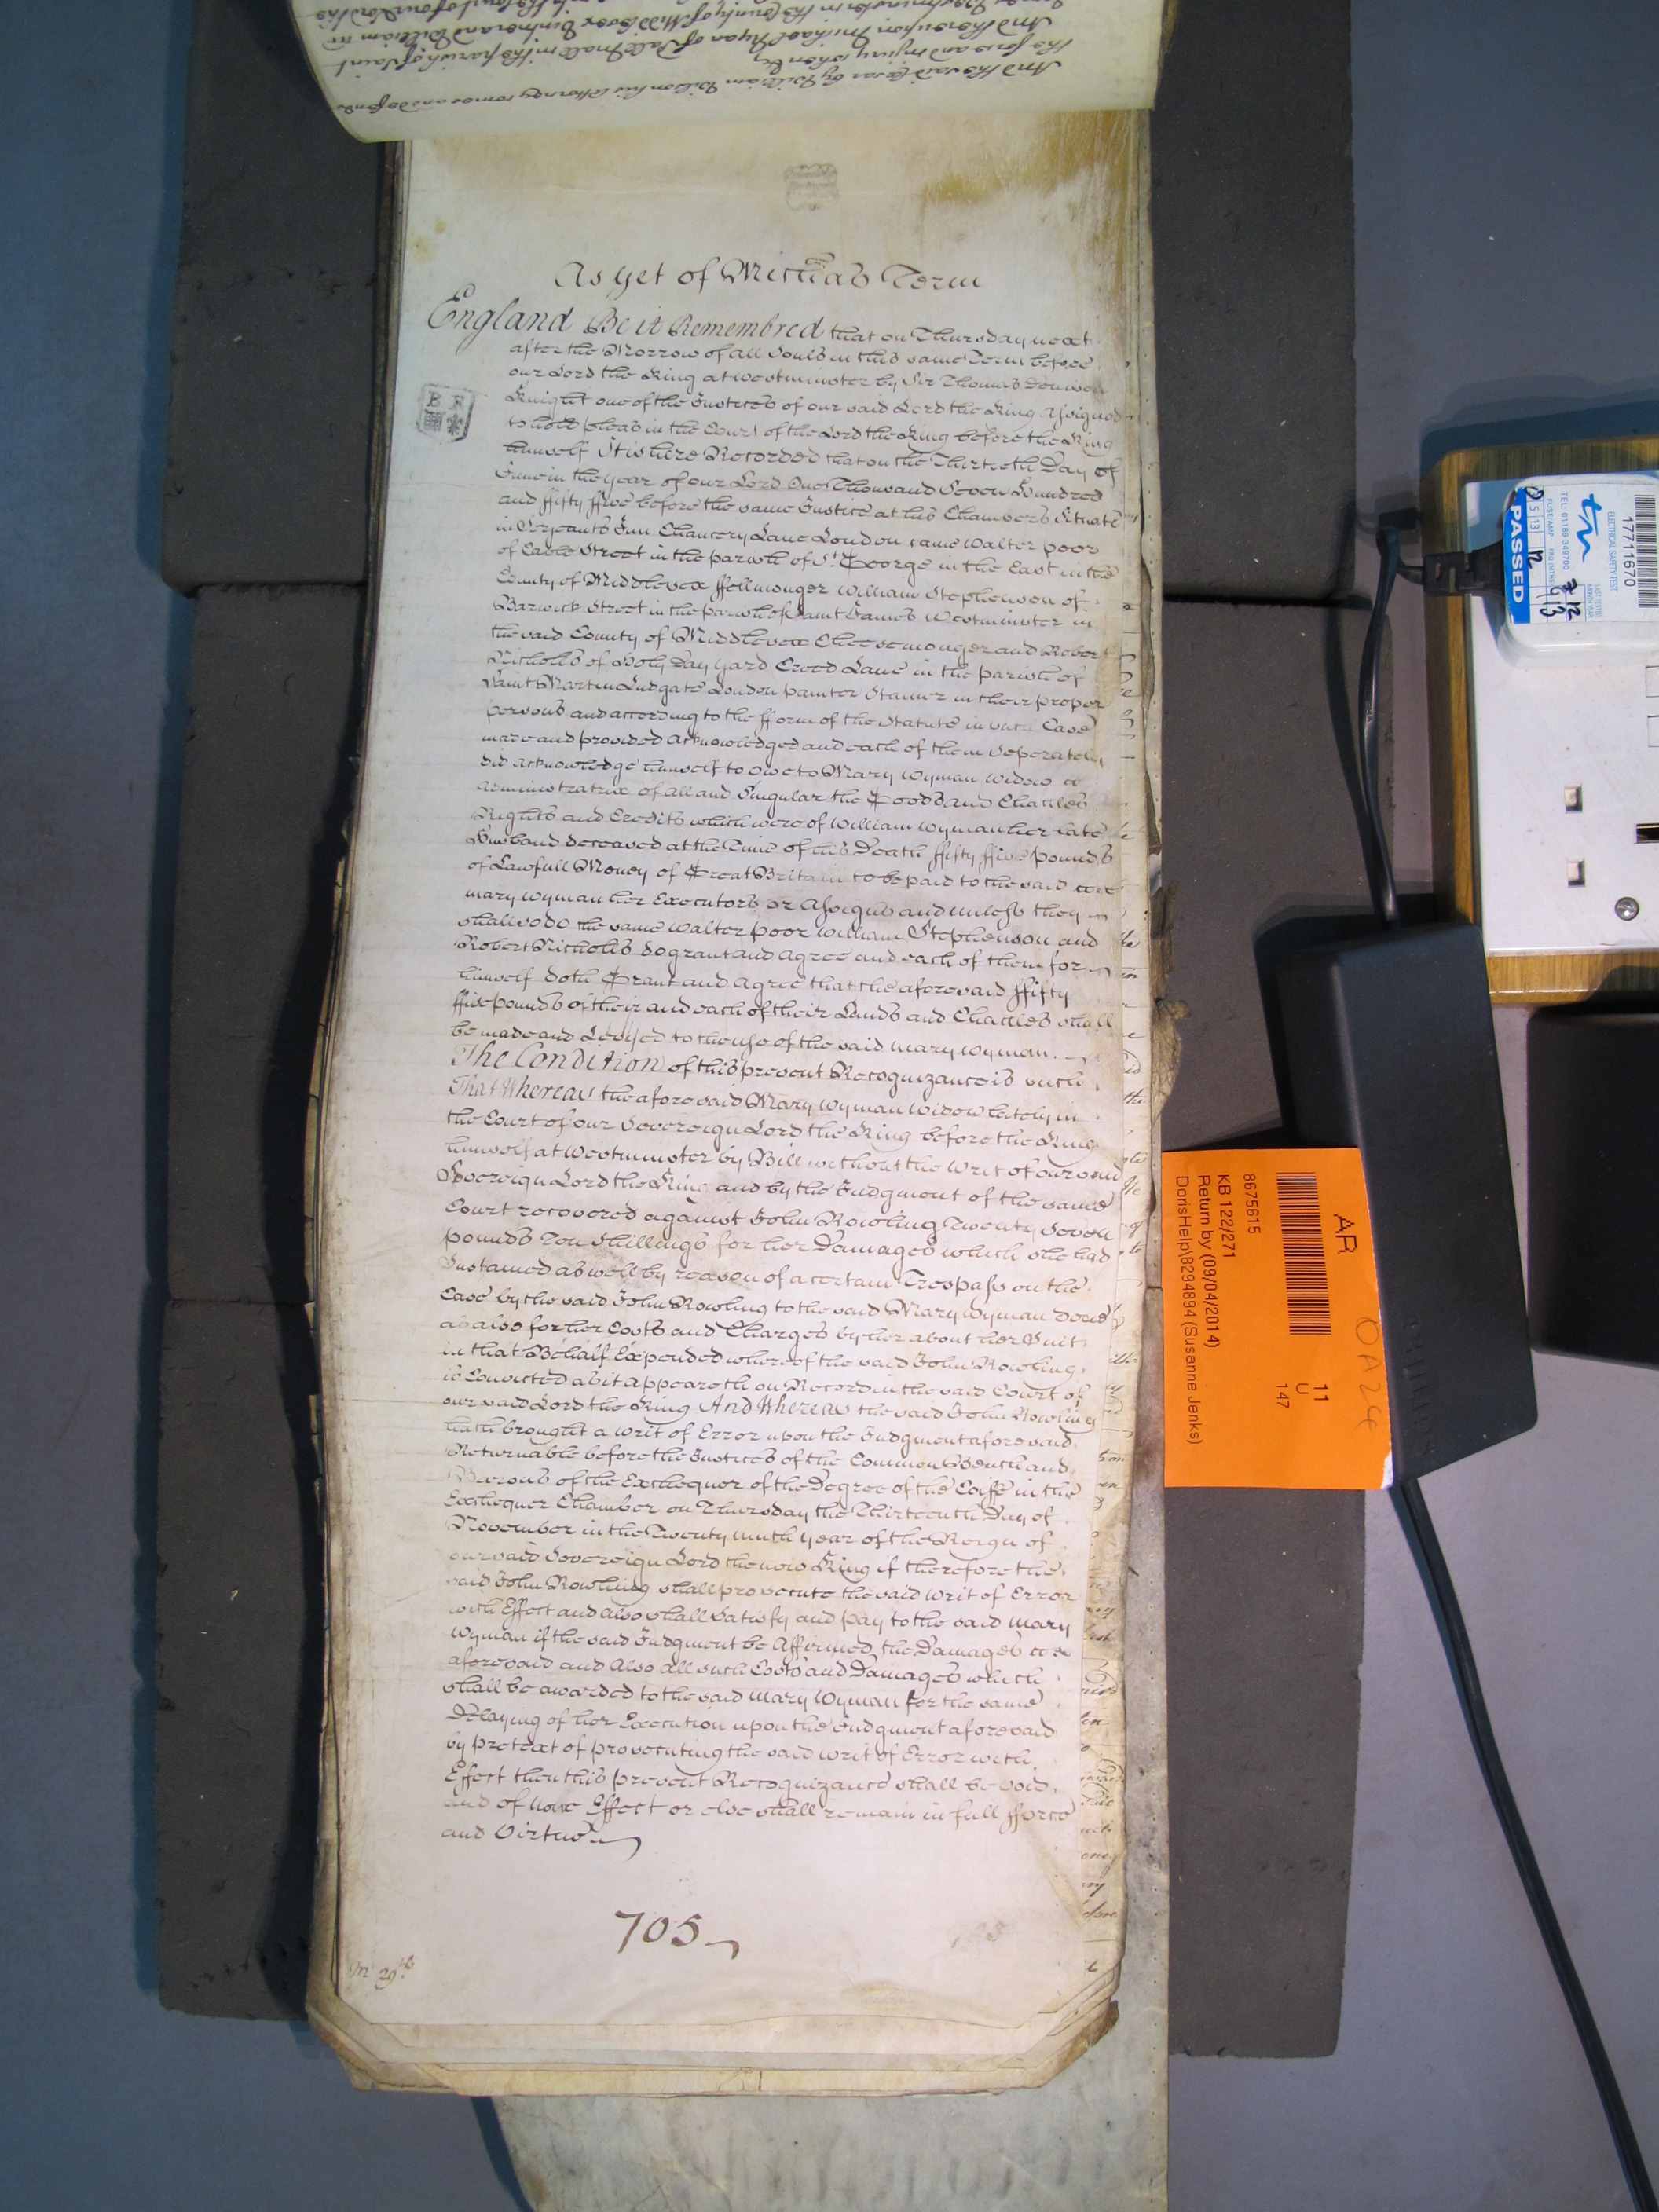 And the said Cæsar by William Wilson his Attorney comes and defends
the force and injury when &c
And thereupon Michael Ryan of Pall Mall in the parish of Saint
James Westminster in the County of Middlesex Vintner and William
As yet of Mich̃as Term
England Be it Remembred that on Thursday next
after the Morrow of all Souls in this same Term before
our Lord the King at Westminster by Sir Thomas Denison
Knight one of the Justices of our said Lord the King Assigned
to hold pleas in the Court of the Lord the King before the King
himself It is here Recorded that on the Thirtieth Day of
June in the year of our Lord One Thousand Seven Hundred
and ffifty ffive before the same Justice at his Chambers Situate
in Serjeants Inn Chancery Lane London came Walter poor
of Cable Street in the parish of St. George in the East in the
County of Middlesex ffellmonger William Stephenson of
Barwick Street in the parish of Saint James Westminster in
the said County of Middlesex Cheesemonger and Robert
Nicholls of Holy Day Yard Creed Lane in the parish of
Saint Martin Ludgate London painter Stainer in their proper
persons and according to the fform of the Statute in such Case
made and provided Acknowledged and each of them Seperately
did acknowledge himself to Owe to Mary Wyman Widow
Administratrix of all and Singular the Goods and Chattles
Rights and Credits which were of William Wyman her late
Husband deceased at the time of his Death ffifty ffive pounds
of Lawfull Money of Great Britain to be paid to the said
mary Wyman her Executors or Assigns and unless they
shall so do the same Walter poor William Stephenson and
Robert Nicholls do grant and agree and each of them for
himself doth Grant and Agree that the aforesaid ffifty
ffive pounds of their and each of their Lands and Chattles shall
be made and Levyed to the use of the said mary Wyman.
The Condition of this present Recognizance is such
That Whereas the aforesaid Mary Wyman Widow lately in
the Court of our Sovereign Lord the King before the King
himself at Westminster by Bill without the Writ of our said
Sovereign Lord the King and by the Judgment of the same
Court recovered against John Rowling Twenty Seven
pounds Ten Shillings for her Damages which she had
Sustained as well by reason of a certain Trespass on the
Case by the said John Rowling to the said Mary Wyman done
as also for her Costs and Charges by her about her Suit
in that Behalf Expended whereof the said John Rowling
is Convicted as it appeareth on Record in the said Court of
our said Lord the King And Whereas the said John Rowling
hath brought a writ of Error upon the Judgment aforesaid
Returnable before the Justices of the Common Bench and
Barons of the Exchequer of the Degree of the Coiffe in the
Exchequer Chamber on Thursday the Thirteenth Day of
November in the Twenty ninth year of the Reign of
our said Sovereign Lord the now King if therefore the
said John Rowling shall prosecute the said writ of Error
with Effect and also shall Satisfy and pay to the said Mary
Wyman if the said Judgment be Affirmed the Damages
aforesaid and Also all such Costs and Damages which
shall be awarded to the said Mary Wyman for the same
Delaying of her Execution upon the Judgment aforesaid
by pretext of prosecuting the said writ of Error with
Effect then this present Recognizance shall be void
and of none Effect or else shall remain in full fforce
and Virtue
705
m 29th
B F
AR
11
U
147
8675615
KB 122/271
Return by (09/04/2014)
DorisHelp\8294894 (Susanne Jenks)
OA24
17711670
ELECTRICAL SAFETY TEST
TEL: 01189 349700
PASSED